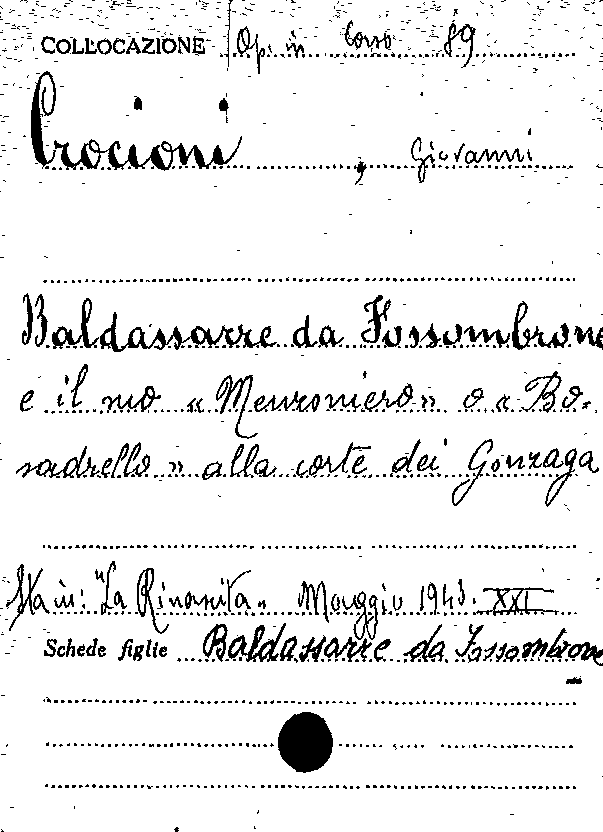 COLLOCAZIONE Op. in Corso 89
Crocioni, Giovanni
Baldassarre da Fossombrone
e il suo « Menzoniero» o « Bo-
sadrello » alla corte dei Gonzaga
Sta in: "La Rinascita" Maggio 1943. XXI
Schede figlie Baldassarre da Fossombrone